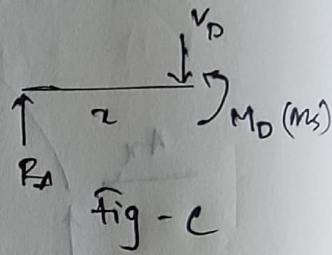 V_D
x
M_D (M_s)
R_A
Fig - C